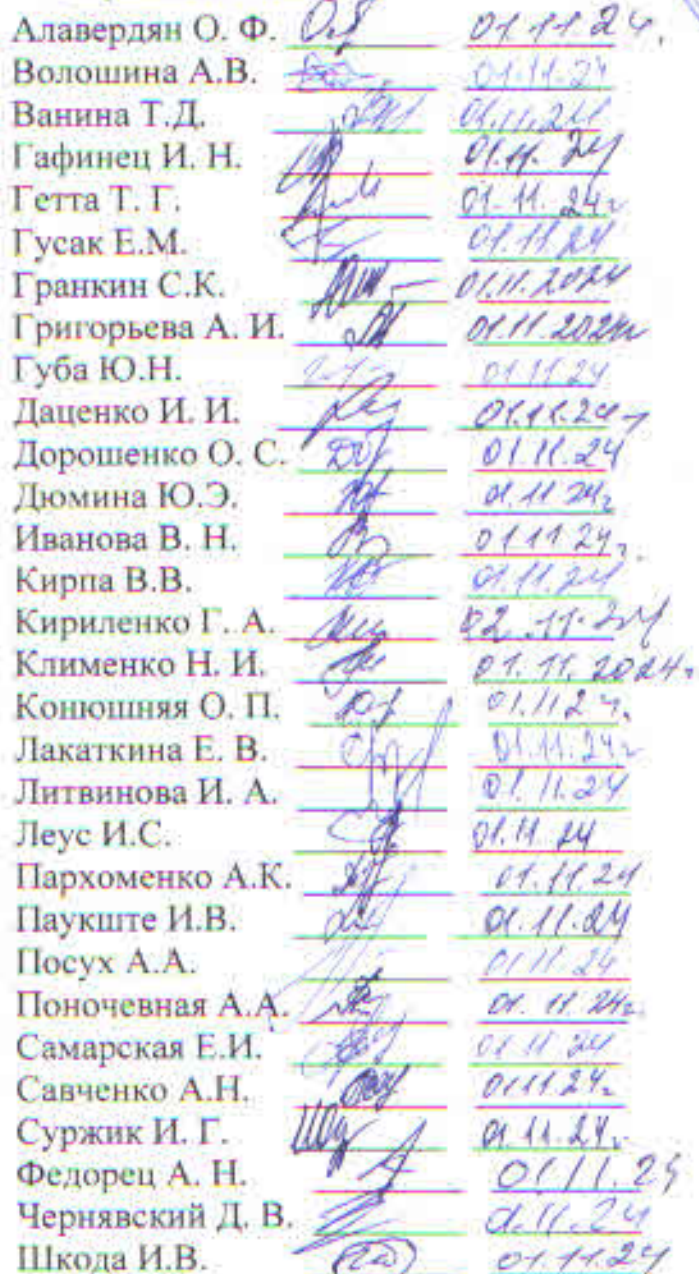 Алавердян О. Ф. 01.11.24.
Волошина А.В. 01.11.24
Ванина Т.Д. 01.11.24
Гафинец И. Н. 01.11.24
Гетта Т. Г. 01.11.24г
Гусак Е.М. 01.11.24
Гранкин С.К. 01.11.2024
Григорьева А. И. 01.11.2024г
Губа Ю.Н. 01.11.24
Даценко И. И. 01.11.24г
Дорошенко О. С. 01.11.24
Дюмина Ю.Э. 01.11.24г
Иванова В. Н. 01.11.24г.
Кирпа В.В. 01.11.24
Кириленко Г. А. 02.11.24
Клименко Н. И. 01.11.2024г
Конюшняя О. П. 01.11.24.
Лакаткина Е. В. 01.11.24г
Литвинова И. А. 01.11.24
Леус И.С. 01.11.24
Пархоменко А.К. 01.11.24
Паукште И.В. 01.11.24
Посух А.А. 01.11.24
Поночевная А.А. 01.11.24г.
Самарская Е.И. 01.11.24
Савченко А.Н. 01.11.24г
Суржик И. Г. 01.11.24г.
Федорец А. Н. 01.11.24
Чернявский Д. В. 01.11.24
Шкода И.В. 01.11.24